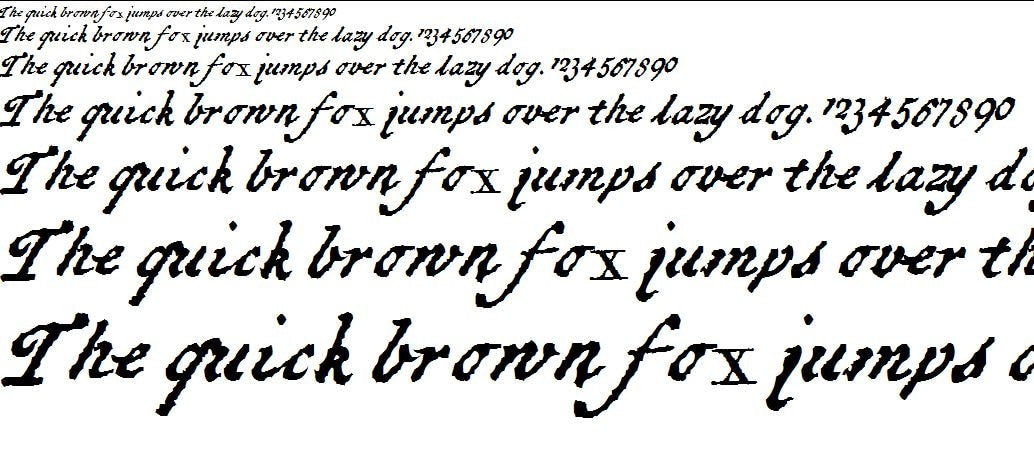 The quick brown fox jumps over the lazy dog. 1234567890
The quick brown fox jumps over the lazy dog. 1234567890
The quick brown fox jumps over the lazy dog. 1234567890
The quick brown fox jumps over the lazy dog. 1234567890
The quick brown fox jumps over the lazy do
The quick brown fox jumps over th
The quick brown fox jumps o